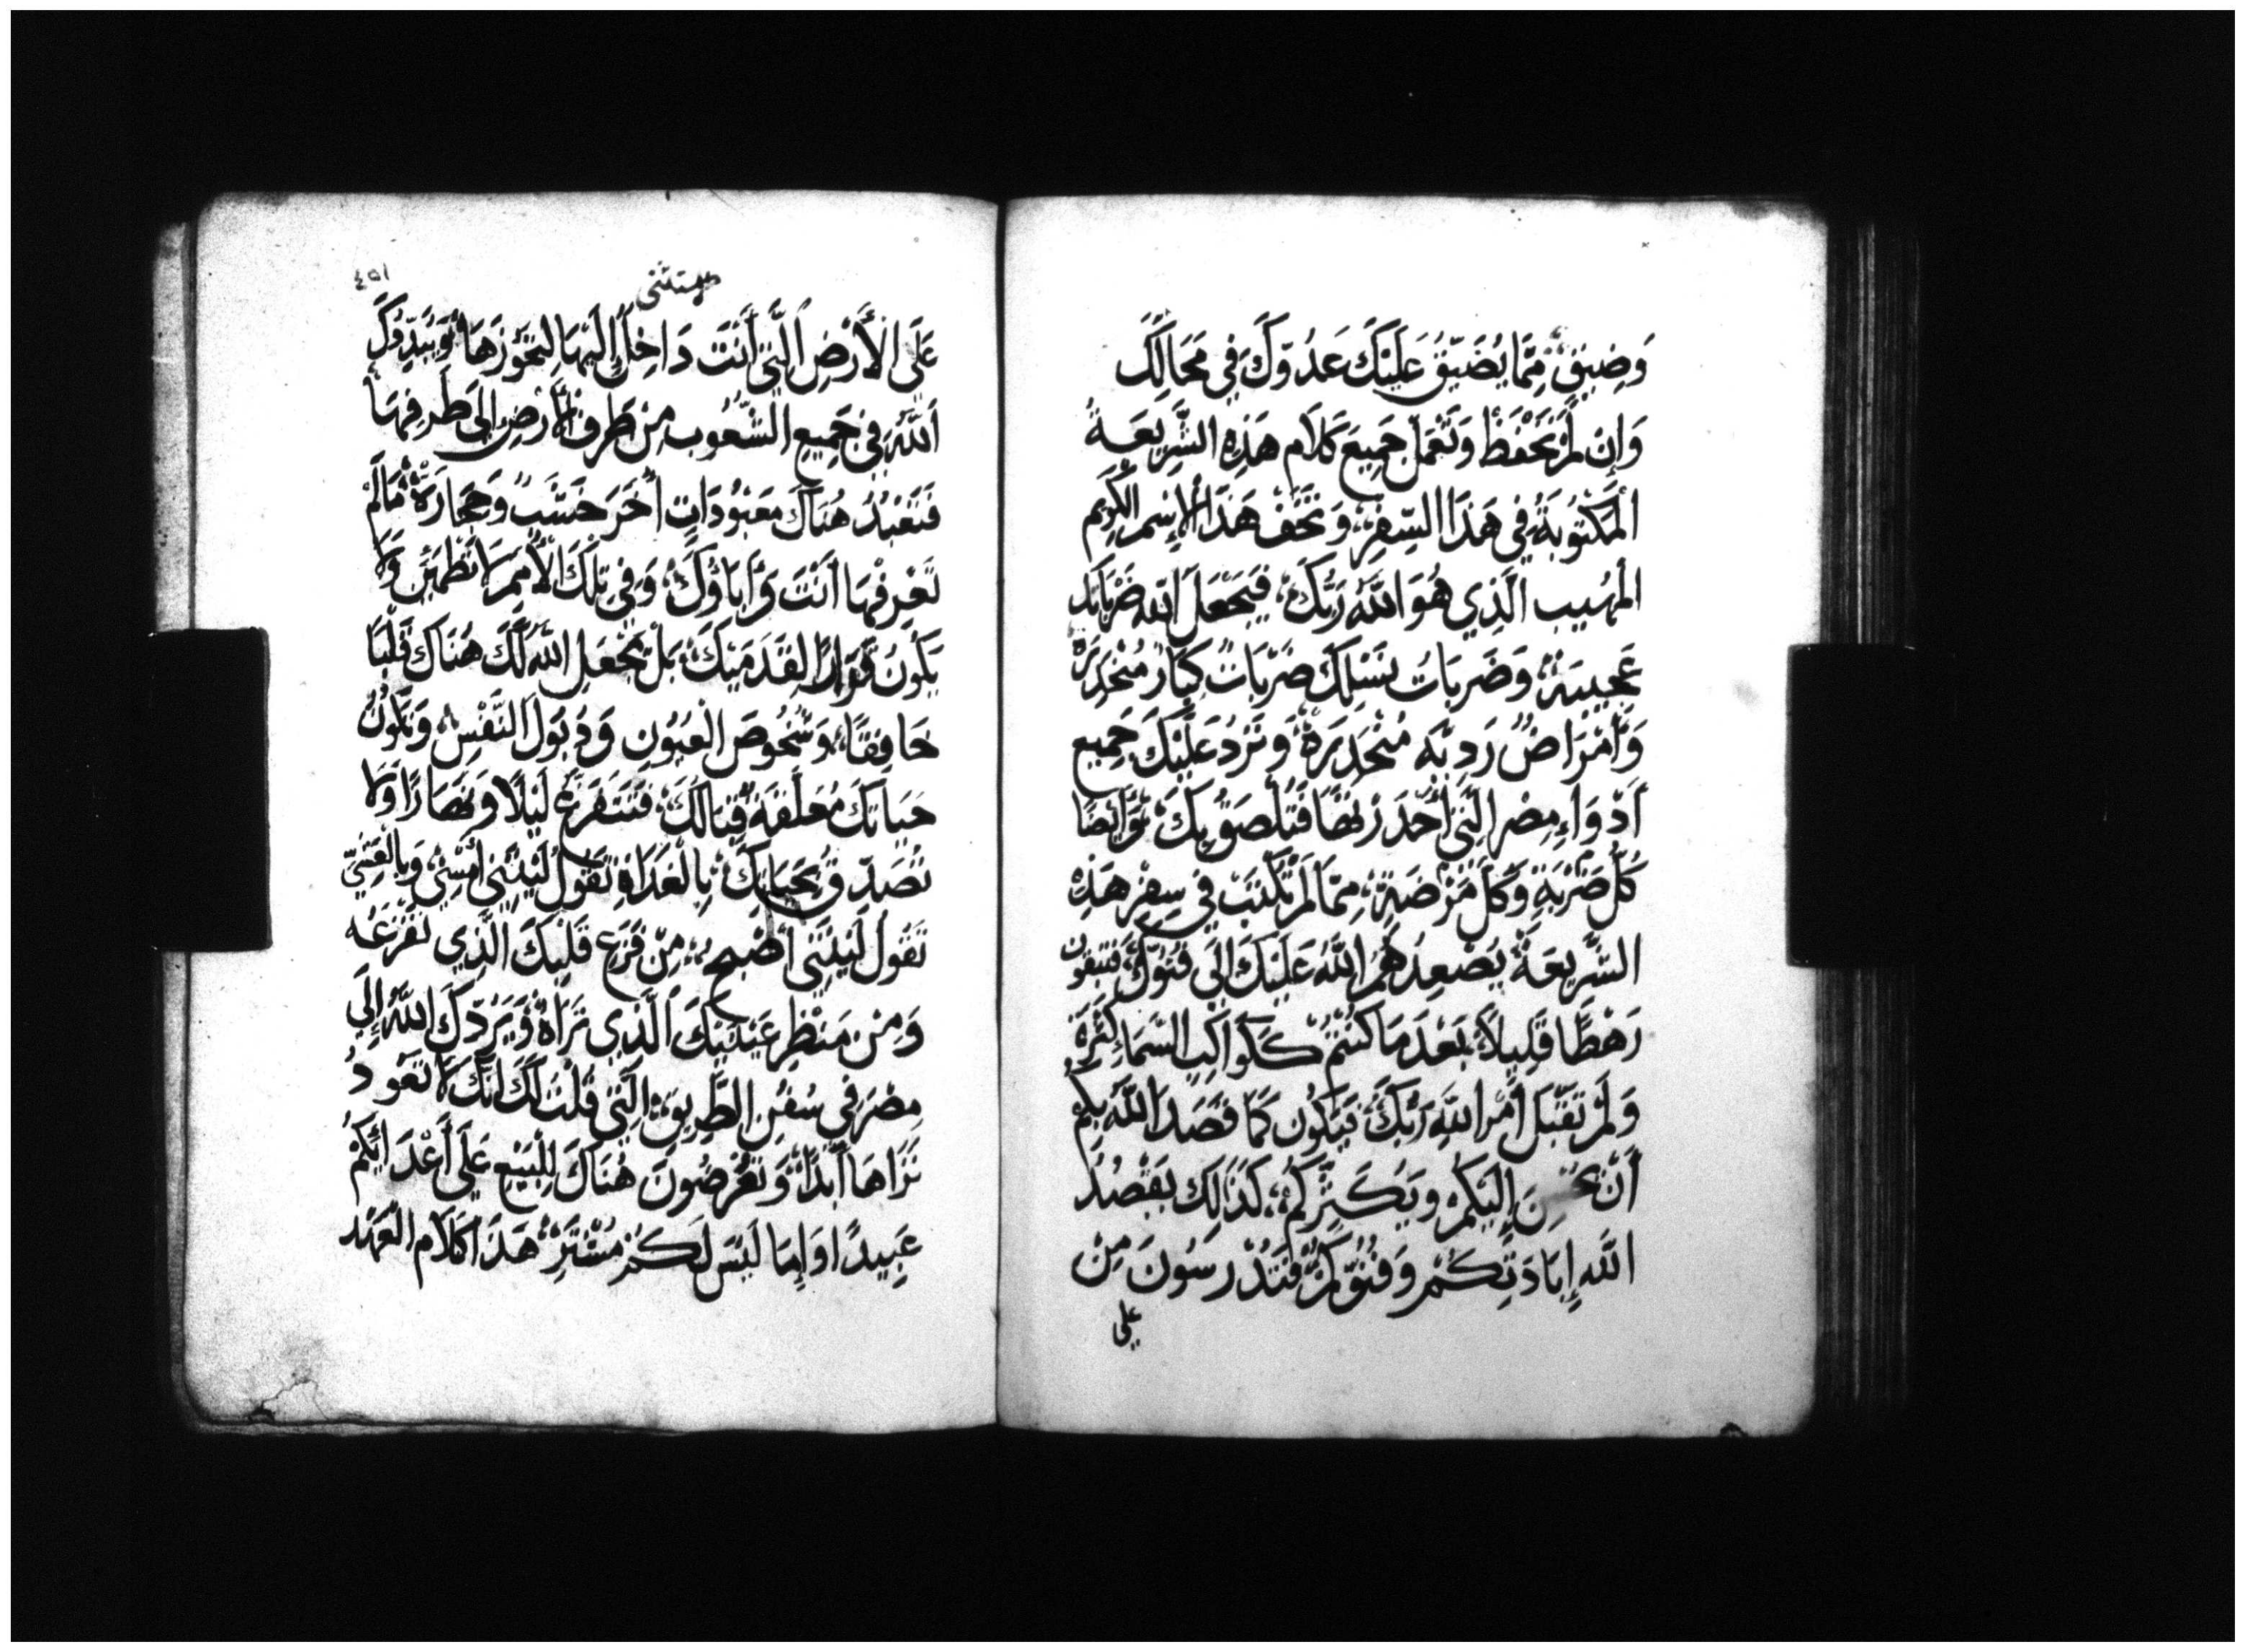 وَضِيقٍ مِمَّا يُضَيِّقُ عَلَيْكَ عَدُوُّكَ فِي مَحَالِّكَ
وَإِنْ لَمْ تَحْفَظْ وَتَعْمَلْ جَمِيعَ كَلَامِ هَذِهِ الشَّرِيعَةِ
الْمَكْتُوبَةِ فِي هَذَا السِّفْرِ وَتَخَفْ هَذَا الْإِسْمِ الْكَرِيمِ
الْمَهِيبِ الَّذِي هُوَ اللَّهُ رَبُّكَ فَيَجْعَلُ اللَّهُ ضَرَبَاتَكَ
عَجِيبَةً وَضَرَبَاتُ نَسْلِكَ ضَرَبَاتٌ كِبَارٌ مُنْحَدِرَة
وَأَمْرَاضٌ رَدِيَّه مُنْحَدِرَةٌ وَتَرُدُّ عَلَيْكَ جَمِيعَ
أَدْوَاءِ مِصْرَ الَّتِي أُحَذِّرُ بِهَا فَتَلْصَقُ بِكَ وَأَيْضًا
كُلَّ ضَرْبَةٍ وَكُلَّ مَرْضَةٍ مِمَّا لَمْ تُكْتَبْ فِي سِفْرِ هَذِهِ
الشَّرِيعَةِ يُصْعِدُهُمُ اللَّهُ عَلَيْكَ إِلَى فُنُوِّكَ فَتَبْقَونَ
رَهْطًا قَلِيلًا بَعْدَمَا كُنْتُمْ كَكَوَاكِبِ السَّمَاءِ كَثْرَةً
وَلَمْ تَقْبَلْ أَمْرَ اللَّهِ رَبِّكَ فَيَكُونُ كَمَا قَصَدَ اللَّهُ بِكُمْ
أَنْ إِلَيْكُمْ وَيُكَثِّرَكُمْ كَذَالِكَ يَقْصُدُ
اللَّهُ إِبَادَتِكُمْ وَفُنُوِّكُمْ فَتَنْدَرِسُونَ مِنْ
على
مستثنى
٤٥١
عَلَى الْأَرْضِ الَّتِي أَنْتَ دَاخِلٌ إِلَيْهَا لِتَحُوزَهَا وَيُبَدِّدُكَ
اللَّهُ فِي جَمِيعِ الشُّعُوبِ مِنْ طَرَفِ الْأَرْضِ إِلَى طَرَفِهَا
فَتَعْبُدُ هُنَاكَ مَعْبُودَاتٍ أُخَرَ خَشَبٌ وَحِجَارَةٌ مَالَمْ
تَعْرِفْهَا أَنْتَ وَأَبَاؤُكَ وَفِي تِلْكَ الْأُمَمِ لَا تَطْمَئِنُّ وَلَا
يَكُونُ قَرَارًا لِقَدَمَيْكَ بَلْ يَجْعَلِ اللَّهُ لَكَ هُنَاكَ قَلْبًا
خَافِقًا وَشُخُوصَ الْعُيُونِ وَذُبُولَ النَّفْسِ وَتَكُونُ
حَيَاتُكَ مُعَلَّقَةً قِبَالَكَ فَتَتَفَزَّعُ لَيْلًا وَنَهَارًا وَلَا
تُصَدِّقُ بِحَيَاتِكَ بِالْغَدَاةِ تَقُولُ لَيْتَنِي أُمْسِي وَبِالْعَشِيِّ
تَقُولُ لَيْتَنِي أُصْبِحُ مِنْ فَزَعِ قَلْبِكَ الَّذِي تَفْزَعُه
وَمِنْ مَنْظَرِ عَيْنَيْكَ الَّذِي تَرَاهُ وَيَرُدُّكَ اللَّهُ إِلَى
مِصْرَ فِي سُفُنِ الطَّرِيقِ الَّتِي قُلْتُ لَكَ انَّكَ لَا تَعُودُ
تَرَاهَا أَبَدًا وَتُعْرَضُونَ هُنَاكَ لِلْبَيْعِ عَلَى أَعْدَائِكُمْ
عَبِيدًا وَإِمَا لَيْسَ لَكُمْ مُشْتَرٍ هَذَا كَلَامِ الْعَهْدِ